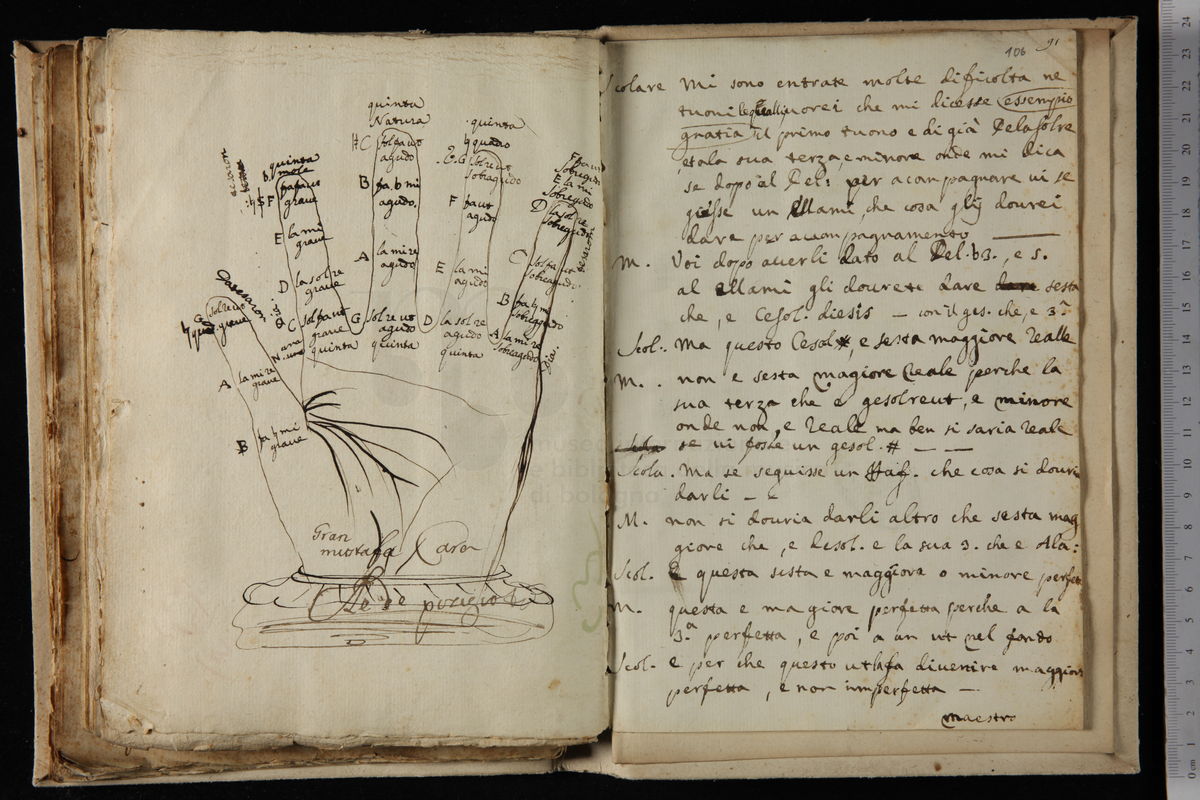 quinta
Natura
C solfaut
agudo
B fa b mi
agudo.
A la mi re
agudo
G sol re ut
agudo
quinta
quinta
♮ quadro
G sol re ut
sobragudo
F fa ut
agudo
E la mi
agudo
D la sol re
agudo
quinta
quinta
b molle
F fa ut
grave
E la mi
grave
D la sol re
grave
C sol fa ut
grave
quinta
G sol re ut
grave
A la mi re
grave
B fa ♮ mi
grave
F fa ut
Sobregudo
E la mi
Sobregudo
D la sol re
Sobregudo
C sol fa ut
Sobragudo
B fa ♮ mi
Sobragudo
A la mi re
Sobragudo
Gran
mustafa
106 91
Scolare Mi sono entrate molte dificolta ne
tuoni vorei che mi dicesse essempio
gratia il primo tuono e di già Delasolre
et la sua terza, e minore onde mi dica
se dopo al Del: per acompagnare vi se
gisse un Ellami, che cosa gli dourei
dare per acompagnamento
M. Voi dopo averli dato al Del. b3., e 5.
al ellami gli dourete dare dare sesta
che, e Cesol. diesis – con il ges. che, e 3ª
Scol:. Ma questo Cesol #, e sesta maggiore reale
M. . non e sesta magiore reale perche la
sua terza che e gesolreut, e minore
onde non, e reale ma ben si saria reale
se vi fosse un gesol. # – –
Scola. Ma se seguisse un che cosa si douria
darli –
M. non si douria darli altro che sesta mag
giore che, e desol. e la sua 3. che e Ala:
Scol. E questa sista e maggiore o minore perfet
M. questa e magiore perfetta perche a la
3.ª perfetta, e poi a un ut nel fondo
Scol. e per che questo ut la fa divenire maggiore
perfetta, e non immperfetta –
maestro